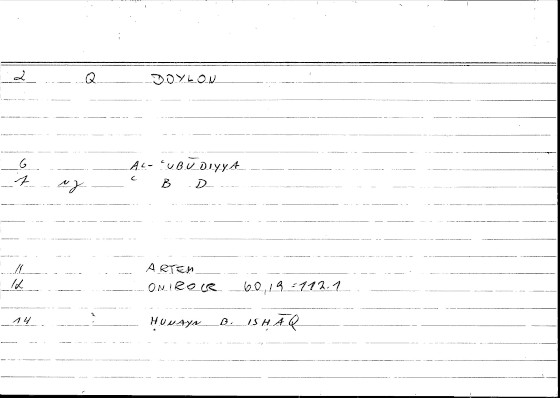 2 Q DOYLON
6 AL-ʿUBŪDIYYA
7 nj ʿ B D
11 ARTEM
12 ONIROCR 60,19=112.1
14 ḤUNAYN B. ISḤĀQ